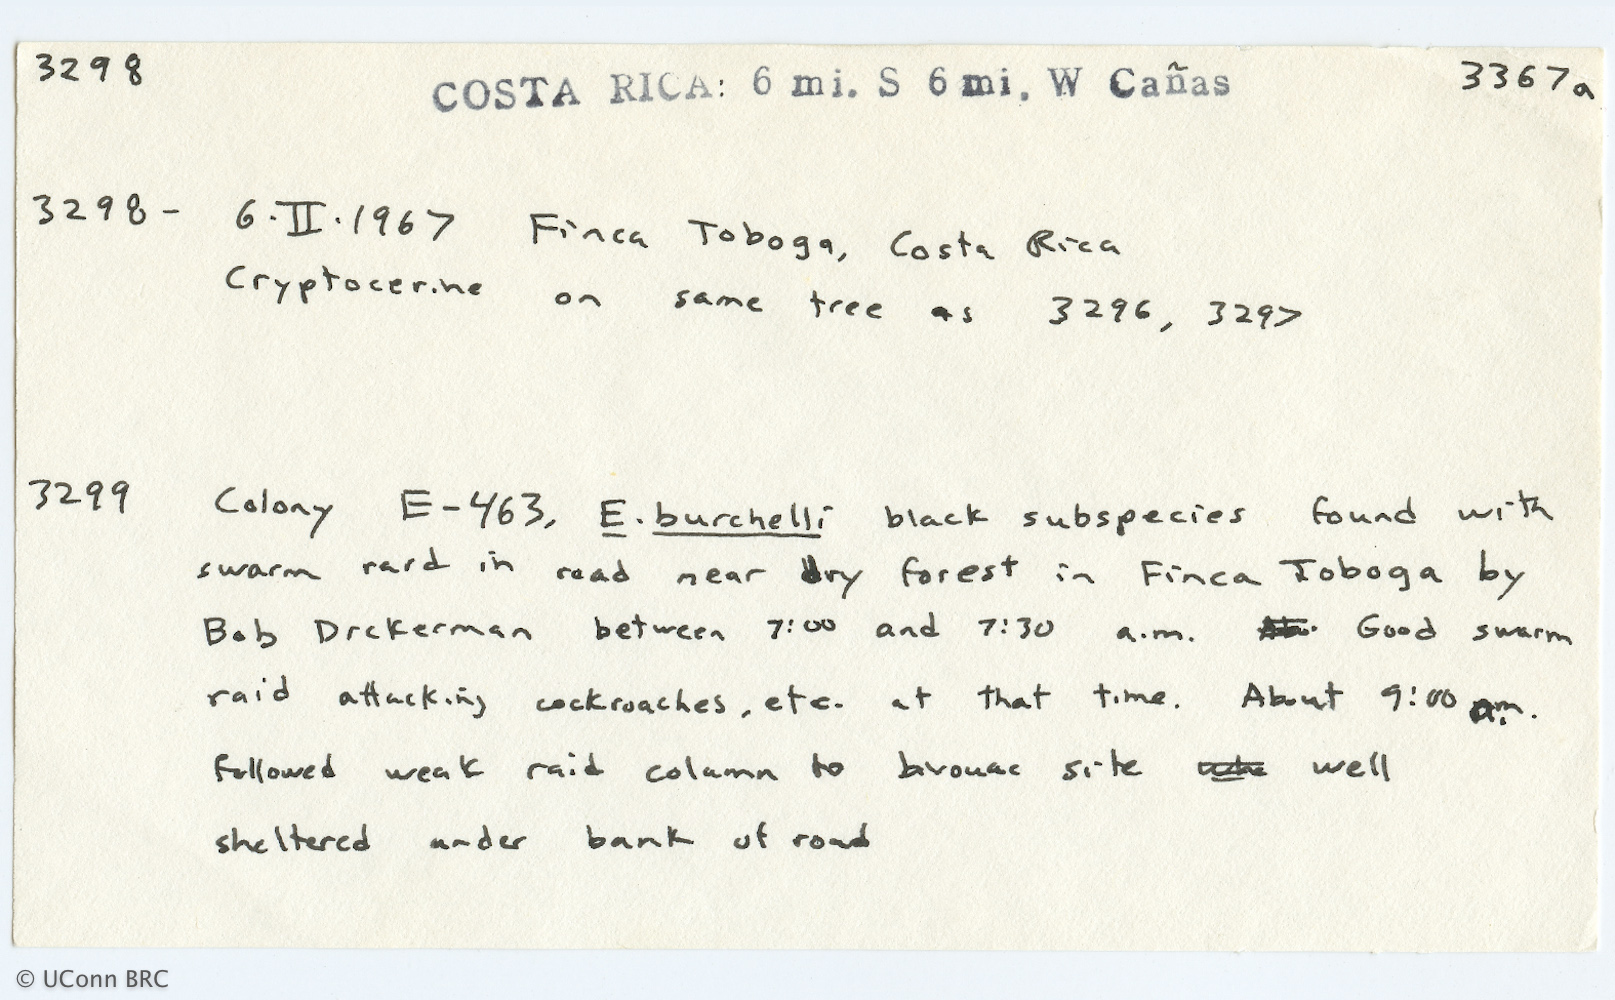 3298
COSTA RICA: 6 mi. S 6 mi. W Cañas
3367a
3298- 6·II·1967 Finca Toboga, Costa Rica
Cryptocerine on same tree as 3296, 3297
3299 Colony E-463, E. burchelli black subspecies found with
swarm raid in road near dry forest in Finca Toboga by
Bob Dickerman between 7:00 and 7:30 a.m. Good swarm
raid attacking cockroaches, etc. at that time. About 9:00 a.m.
followed weak raid column to bivouac site well
sheltered under bank of road
© UConn BRC